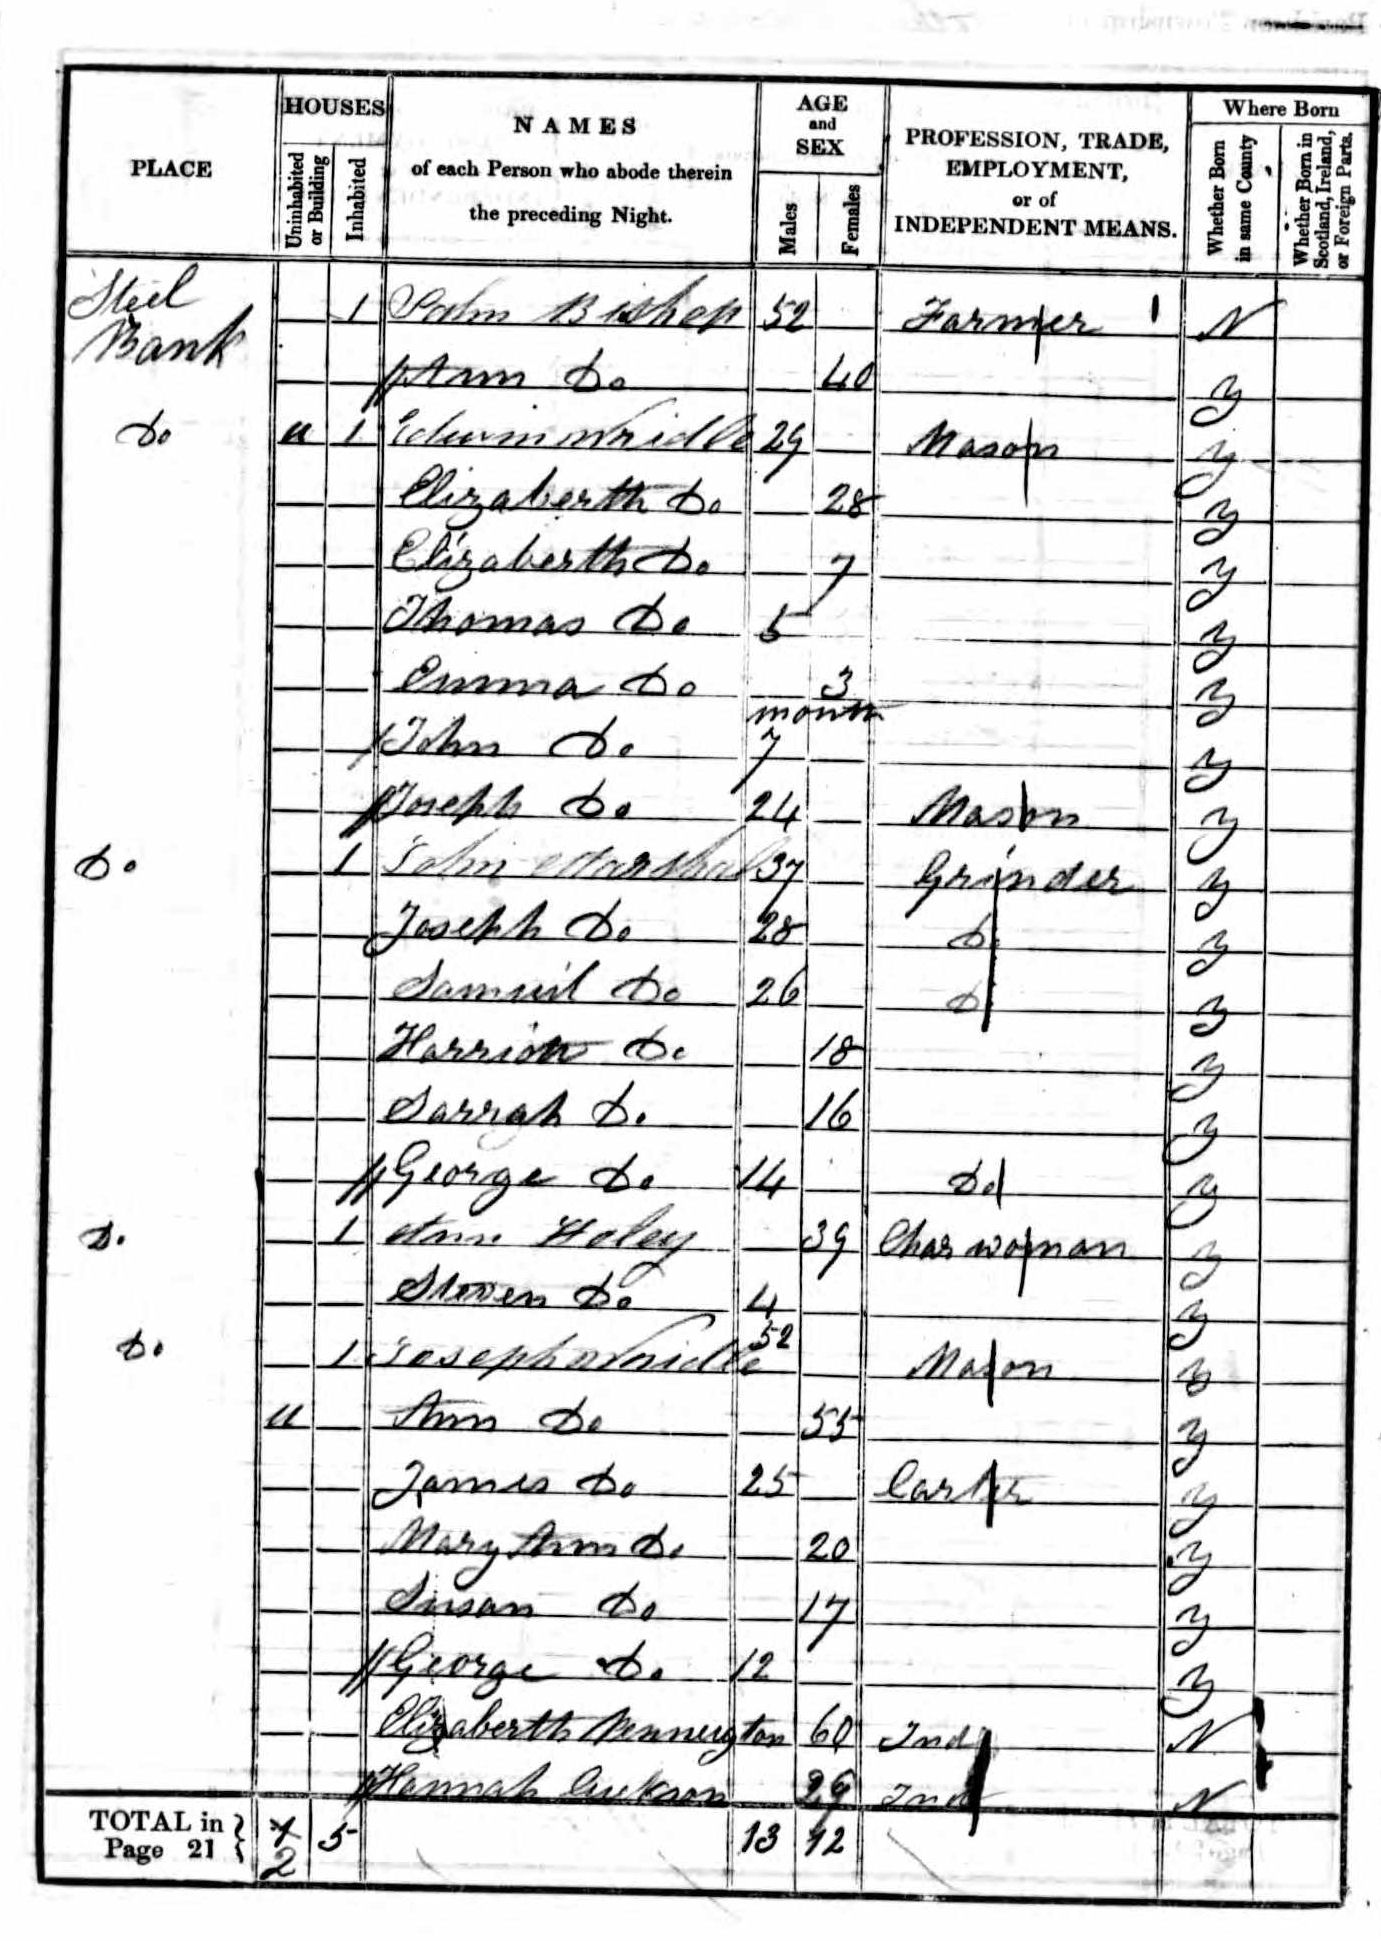 PLACE
HOUSES
Uninhabited or Building
Inhabited
NAMES
of each Person who abode therein
the preceding Night.
AGE
and
SEX
Males
Females
PROFESSION, TRADE,
EMPLOYMENT,
or of
INDEPENDENT MEANS.
Where Born
Whether Born in same County
Whether Born in Scotland, Ireland, or Foreign Parts.
Steel Bank 1 John Bishop 52 Farmer 1 N
Ann Do 40 y
Do u 1 Edwin Wridle 29 Mason y
Elizaberth Do 28 y
Elizaberth Do 7 y
Thomas Do 5 y
Emma Do 3 y
month
John Do 7 y
Joseph Do 24 Mason y
Do 1 John Marshal 37 Grinder y
Joseph Do 28 Do y
Samuil Do 26 Do y
Harriott Do 18 y
Sarrah Do 16 y
George Do 14 Do y
Do 1 Ann Holey 39 Charwoman y
Steven Do 4 y
Do 1 Joseph Wridle 52 Mason y
u Ann Do 55 y
James Do 25 Carter y
Mary Ann Do 20 y
Susan Do 17 y
George Do 12 y
Elizaberth Pennington 60 Ind N
Hannah 29 Ind N
TOTAL in Page 21 } 2 5 13 12